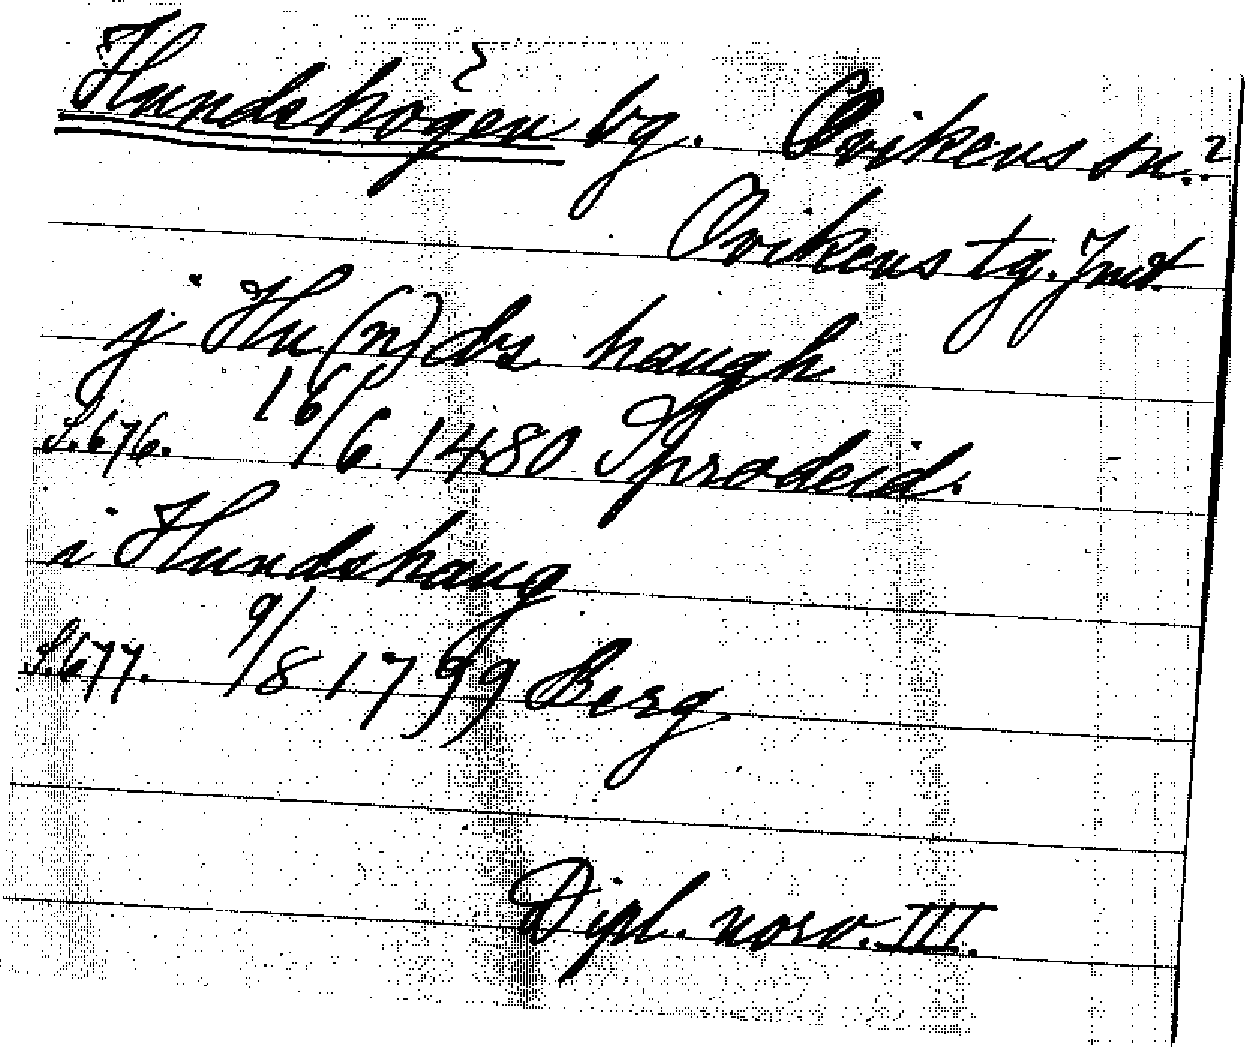 Hundshögen bg. Ovikens sn.?
Ovikens tg. Jmt.
j Hu(n)ds haugh
S.676. 16/6 1480 Sprodeid.
i Hundshaug
S.677. 9/8 1799 Berg
Dipl. norv. III.